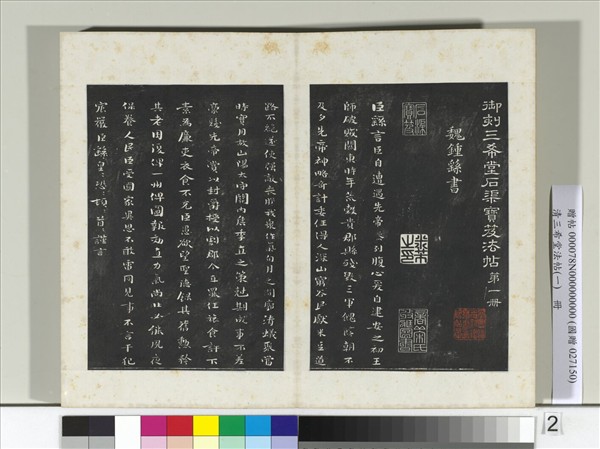 御刻三希堂石渠寶笈法帖第一冊
魏鍾繇書
臣繇言臣自遭遇先帝忝列腹心爰自建安之初王
師破賊關東時年荒穀貴郡縣殘毀三軍餽饟朝不
及夕先帝神略奇計委任得人深山窮谷民獻米豆道
路不絕遂使強敵喪膽我眾作氣旬月之間廓清蟻聚當
時實用故山陽太守關內侯季直之策剋期成事不差
豪髮先帝賞以封爵授以劇郡今直罷任旅食許下
素為廉吏衣食不充臣愚欲望聖德錄其舊勳矜
其老困復俾一州俾圖報效直力氣尚壯必能夙夜
保養人民臣受國家異恩不敢雷同見事不言干犯
宸嚴臣繇皇=恐=頓=首=謹言
贈帖 000078N000000000 (國贈 027150)
清三希堂法帖(一) 冊
2